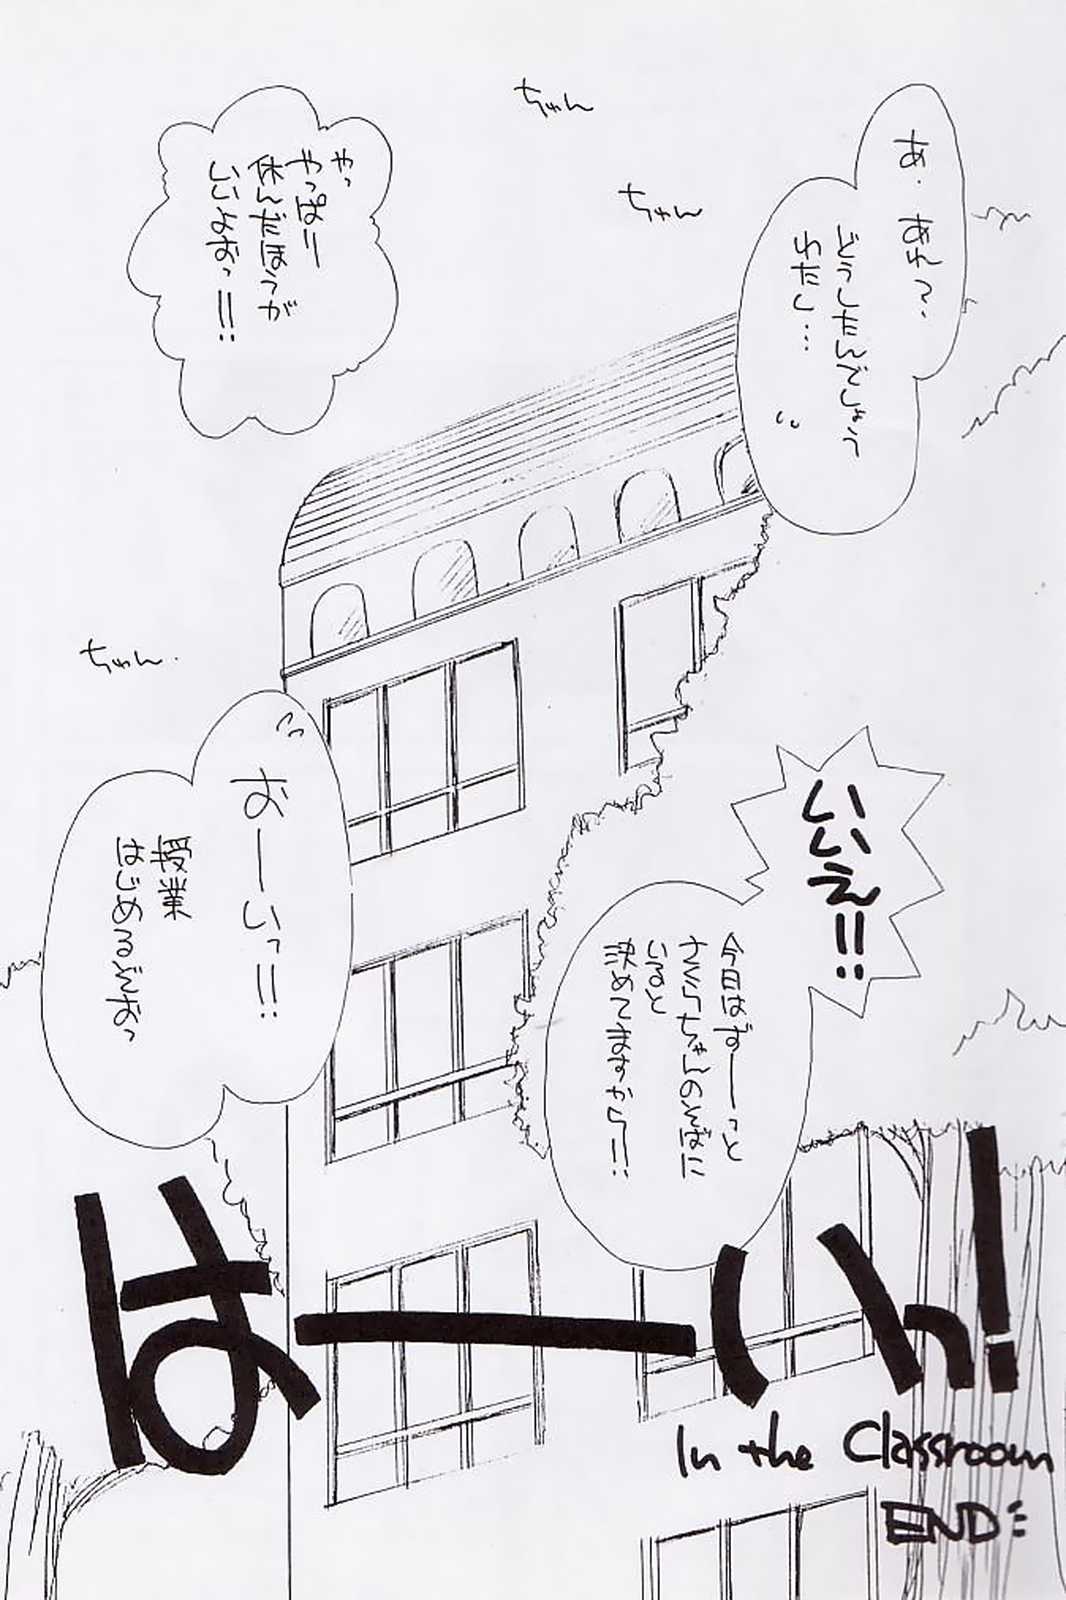 あ．あれ？
どうしたんでしょう
わたし…
ちゅん
ちゅん
やっ
やっぱー
休んだほうが
いいよおっ!!
いいえ!!
今日はずーーっと
さくらちゃんのそばに
いると
決めてますから!!
ちゅん．
おーいっ!!
授業
はじめるぞおっ
はーいっ!
In the Classroom
END